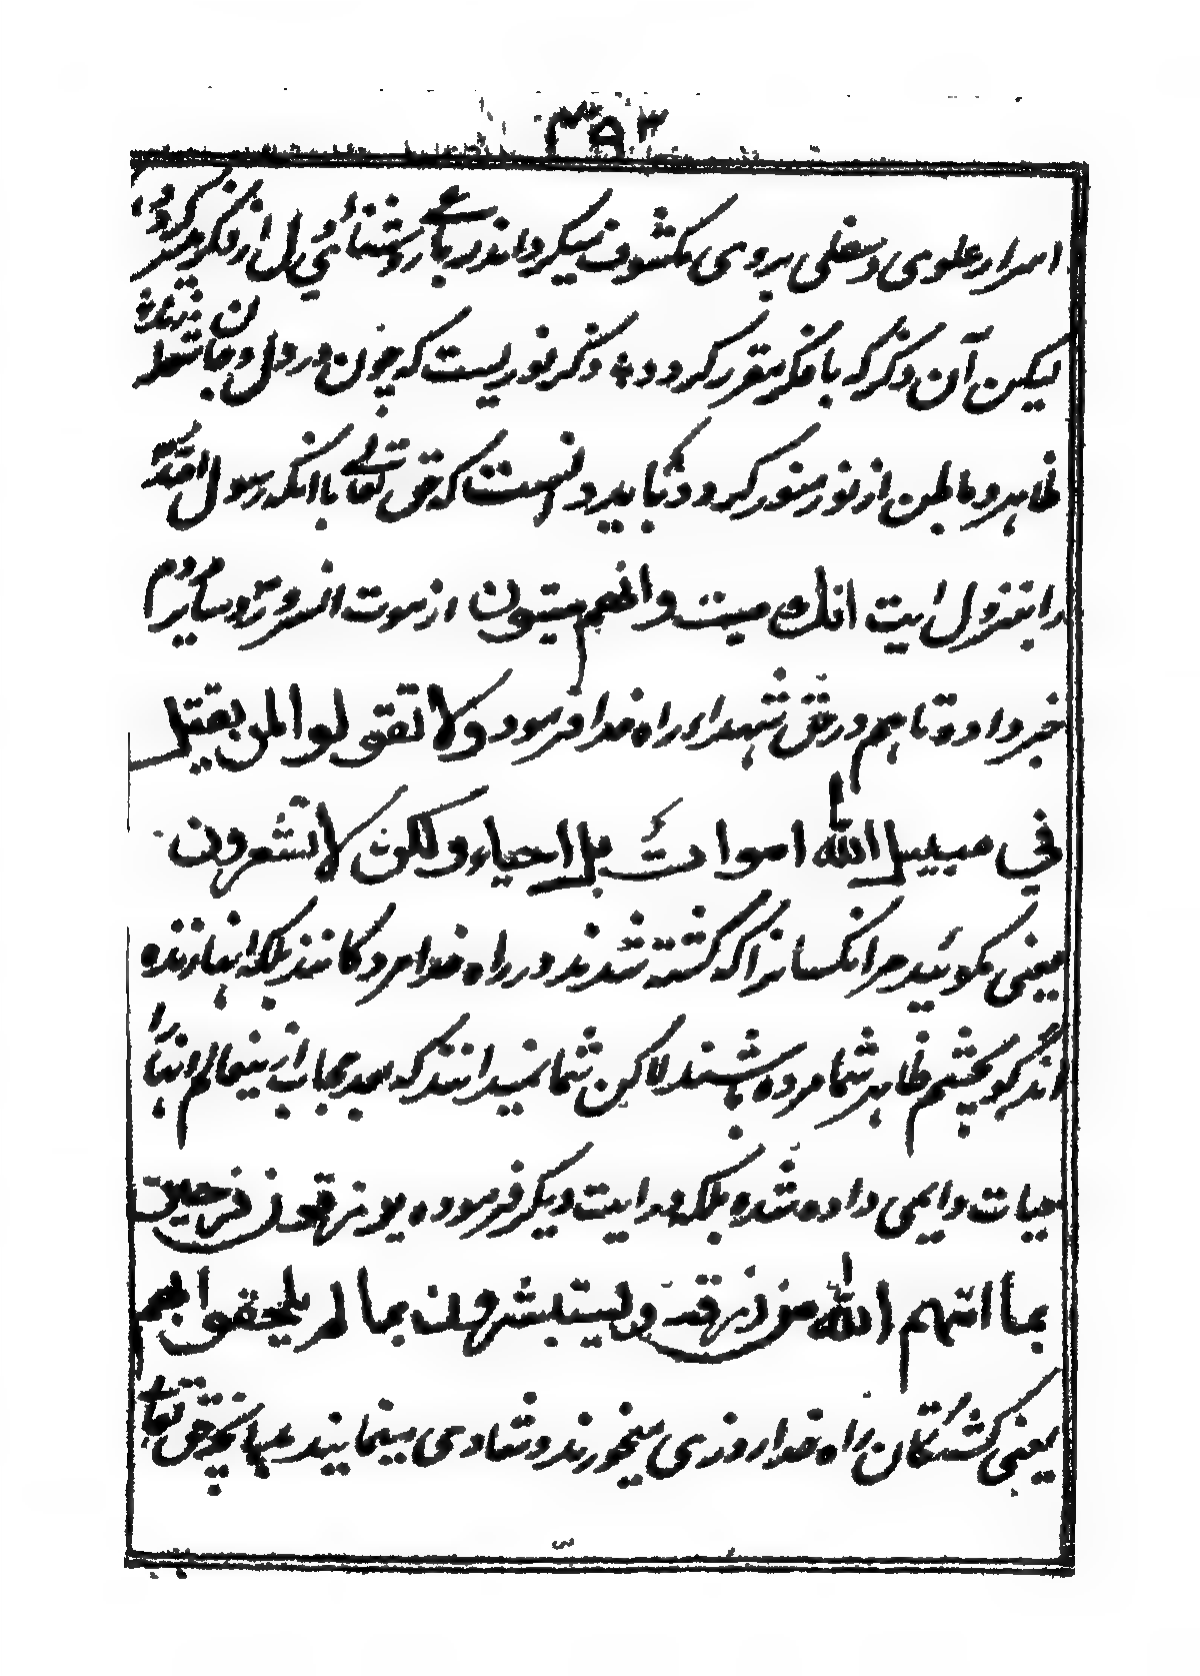 ۳۹۳
اسرار علوی و سفلی بروی مکشوف میکرداند رباعی روشنائی دل از فکر خیزد
لیکن آن ذکر که با فکر مقرر کردد ؛ ذکر نوریست که چون در دل و جان شعله
ظاهر و باطن از نور منور کردد بباید دانست که حق تعالی با انکه رسول
را بنزول ایت انك میت وانهم میتون از موت انسرور و سایر مردم
خبر داده تا هم در حق شهداء راه خدا فرمود ولا تقولوا لمن یقتل
في سبیل الله اموات بل احیاء ولكن لا تشعرون
یعنی مکوئید مر انکسانرا که کشته شدند در راه خدا مردکانند بلکه اینها زنده
اند کو بچشم ظاهر شما مرده باشند لاکن شما نمیدانند که بعد حجاب ازینعالم اینها را
حیات دایمی داده شده بلکه در ایت دیکر فرموده یرزقون فرحین
بما اتهم الله من رزقه ویستبشرون بما لم یلحقوا بهم
یعنی کشتکان راه خدا روزی میخورند و شادی مینمایند بانچه حق تعالی